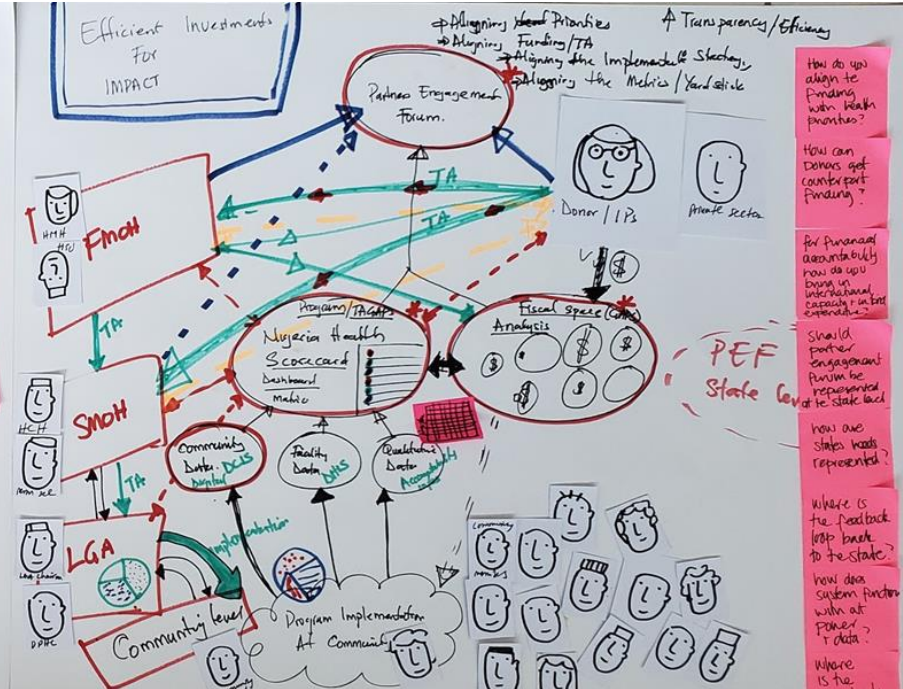 Efficient Investments
For
IMPACT
Aligning Priorities
Aligning Funding/TA
Aligning the
Aligning the Metrics / Yardstick
Transparency/Efficiency
Partner Engagement
Forum.
HMH
FMOH
TA
TA
TA
Donor / IPs
Private Sector
$
Program/TA GAPs
Nigeria Health
Scorecard
Dashboard
Metric
Fiscal space
Analysis
$
$
$
$
$
PEF
State
HCH
SMOH
TA
perm sec
Community
Data
DCIS
Facility
Data
DHIS
Qualitative
Data
Accountability
LGA
Implementation
LGA Chairm
DPHC
Community level
Program Implementation
At Community
Community
How do you
align te
funding
with health
priorities?
How can
Donors get
counterpart
funding?
for financial
accountability
how do you
bring in
international
capacity +
expenditure?
should
partner
engagement
forum be
represented
at te state level
how are
states needs
represented?
where is
the feedback
loop back
to the state?
how does
system function
with at
power
+ data?
where
is the